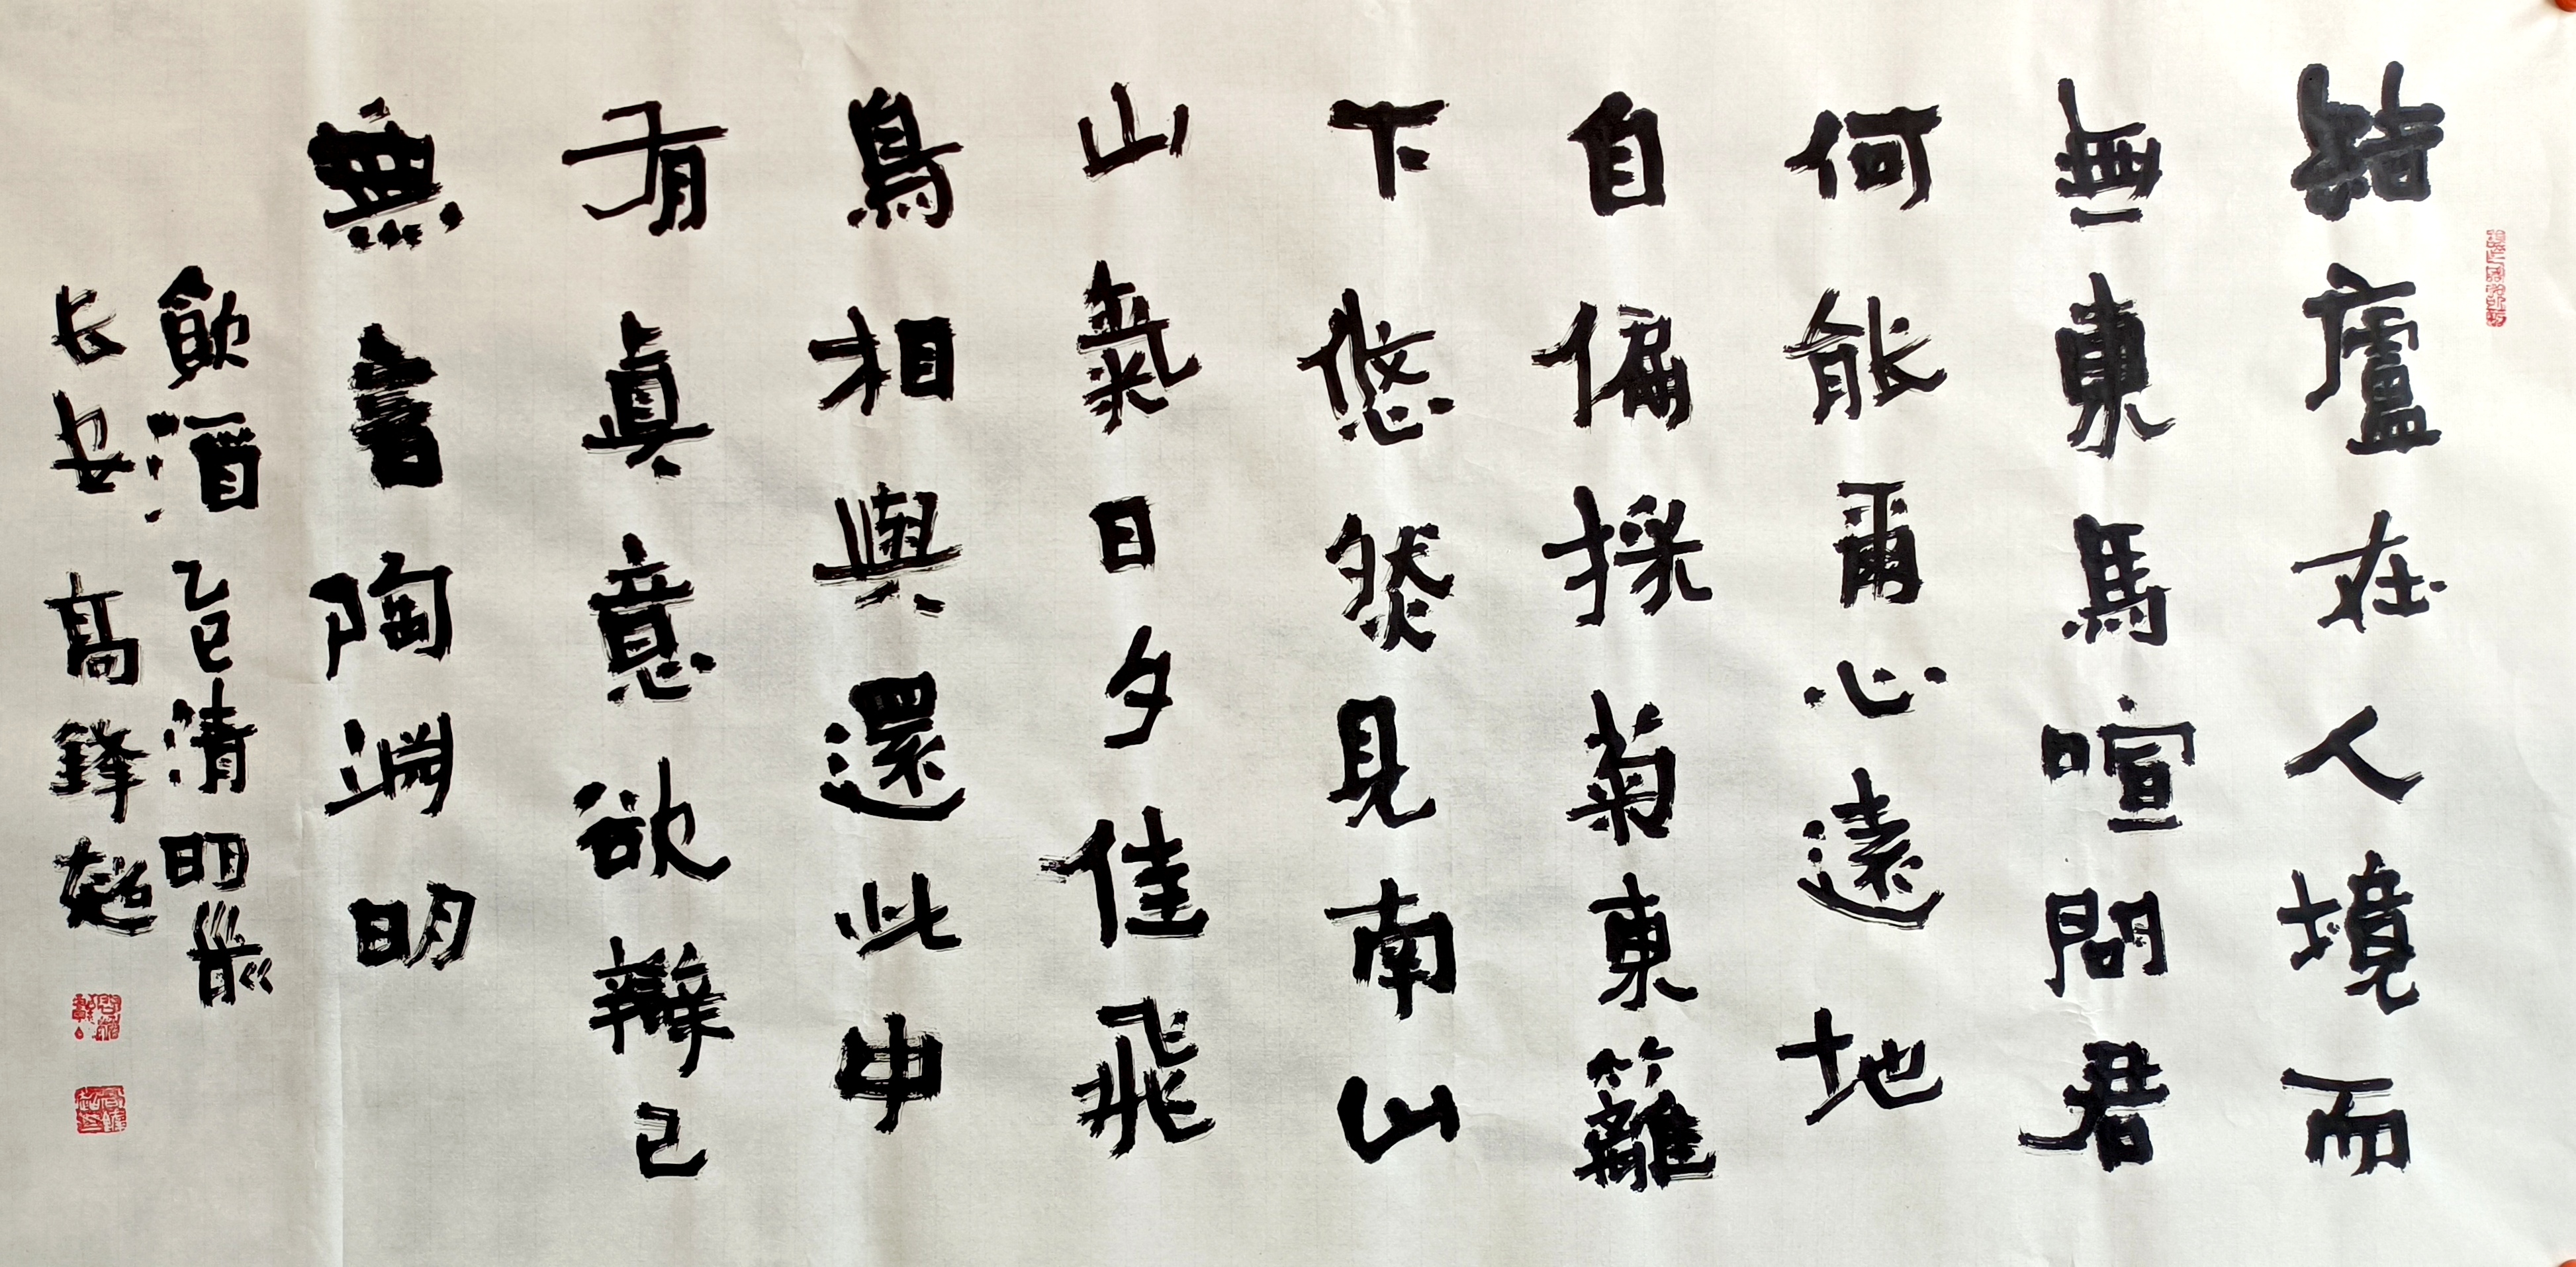 結廬在人境而
無東馬喧問君
何能爾心遠地
自偏採菊東籬
下悠然見南山
山氣日夕佳飛
鳥相與還此申
有眞意欲辯已
無書陶淵明
飲酒乙巳清明前
长安高鋒超